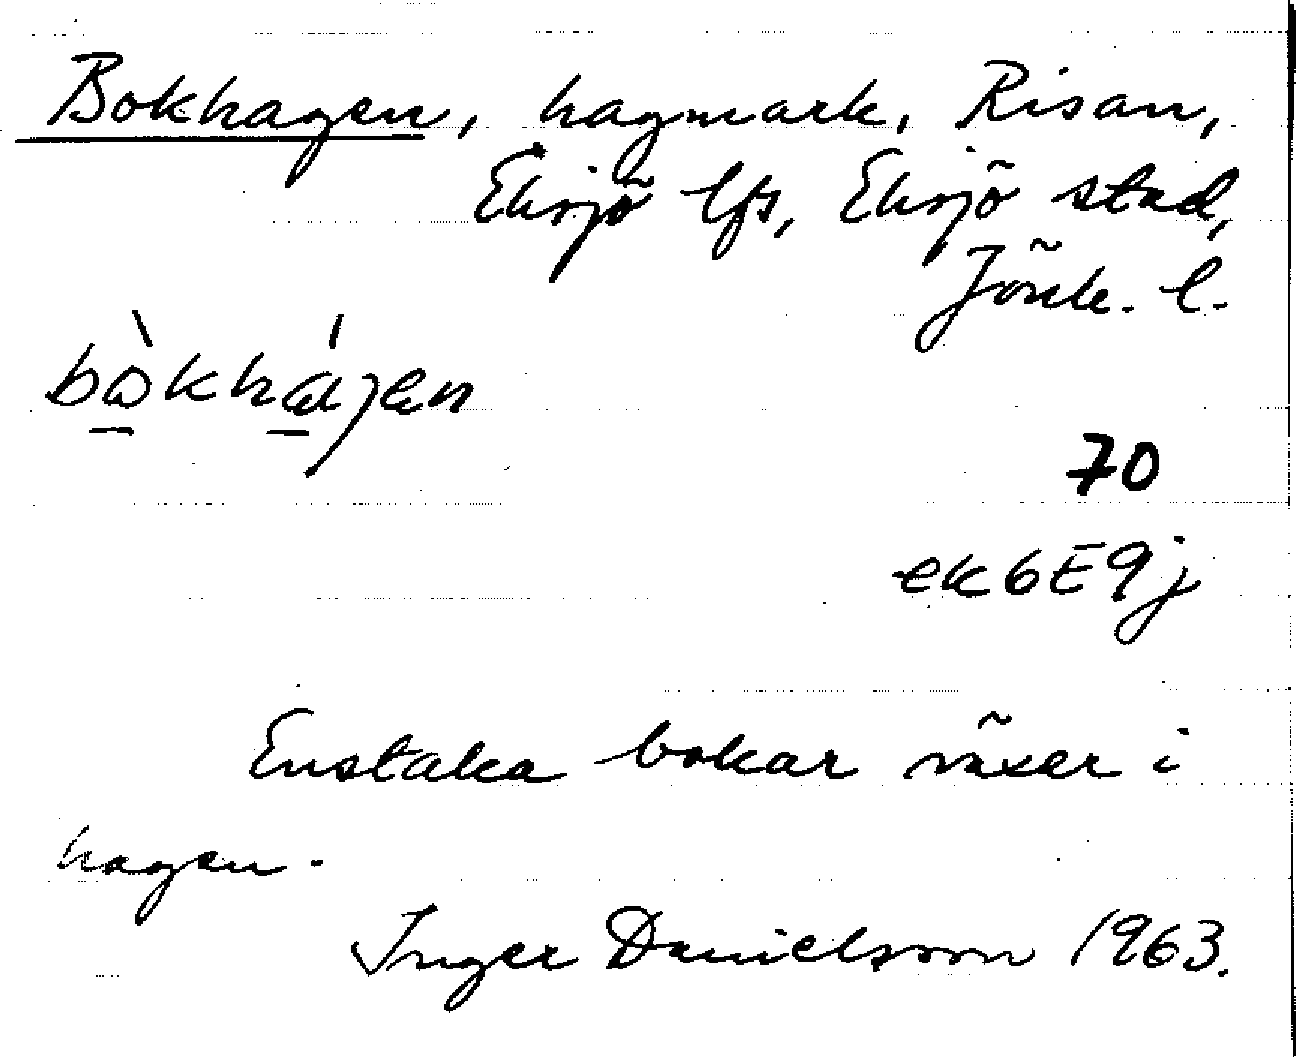 Bokhagen, hagmark, Risan,
Eksjö lfs, Eksjö stad,
Jönk. l.
bòkhájen
70
ek 6E9j
Enstaka bokar växer i
hagen.
Inger Danielsson 1963.